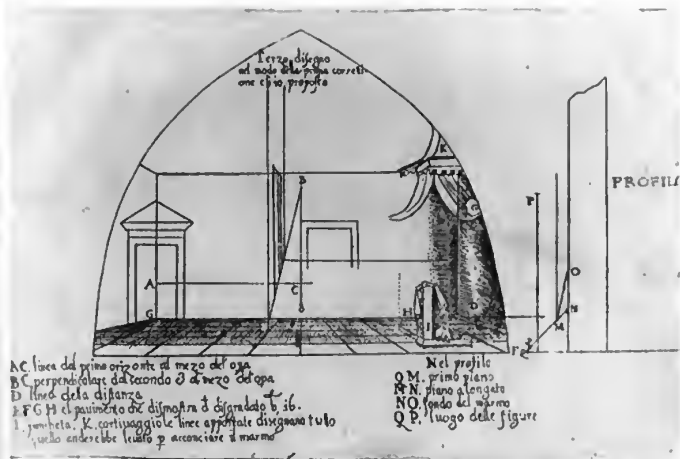 Terzo disegno
nel modo della prima corretti-
one e io proposta
B
K
A
C
G
H
I
D
F
PROFILO
P
O
N
M
Q
AC. linea del primo orizonte al mezo del opa
BC. perpendicolare dal secondo al mezo del opa
D linea della distanza
EFGH el pavimento che dismostra
I. K. cortinaggio le linee appontate disegnano tuto
quello anderebbe levato p acconciare il marmo
Nel profilo
QM. primo piano
MN. piano alongato
NO. fondo del marmo
QP. luogo delle figure